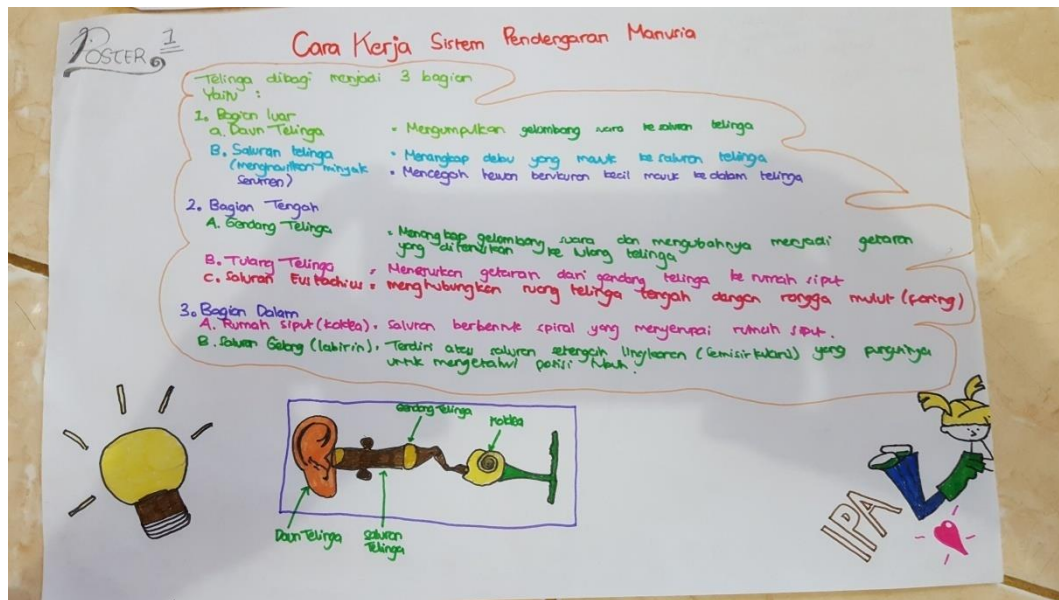 POSTER 1
Cara Kerja Sistem Pendengaran Manusia
Telinga dibagi menjadi 3 bagian
Yaitu :
1. Bagian luar
a. Daun Telinga • Mengumpulkan gelombang suara ke saluran telinga
B. Saluran telinga • Menangkap debu yang masuk ke saluran telinga
(menghasilkan minyak • Mencegah hewan berukuran kecil masuk ke dalam telinga
Serumen)
2. Bagian Tengah
A. Gendang Telinga • Menangkap gelombang suara dan mengubahnya menjadi getaran
yang diteruskan ke tulang telinga
B. Tulang Telinga • Meneruskan getaran dari gendang telinga ke rumah siput
C. Saluran Eustachius • menghubungkan ruang telinga tengah dengan rongga mulut (faring)
3. Bagian Dalam
A. Rumah siput (koklea) • Saluran berbentuk spiral yang menyerupai rumah siput.
B. Saluran Gelang (labirin) • Terdiri atas saluran setengah lingkaran (Semisirkulard) yang pungsinya
untuk mengetahui posisi tubuh.
Gendang Telinga
Koklea
Daun Telinga
Saluran
Telinga
IPA